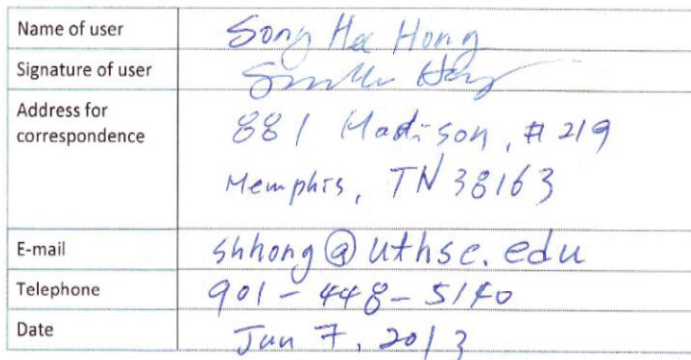 Name of user Song Hee Hong
Signature of user
Address for correspondence 881 Madison, #219
Memphis, TN 38163
E-mail shhong@uthsc.edu
Telephone 901-448-5140
Date Jun 7, 2013